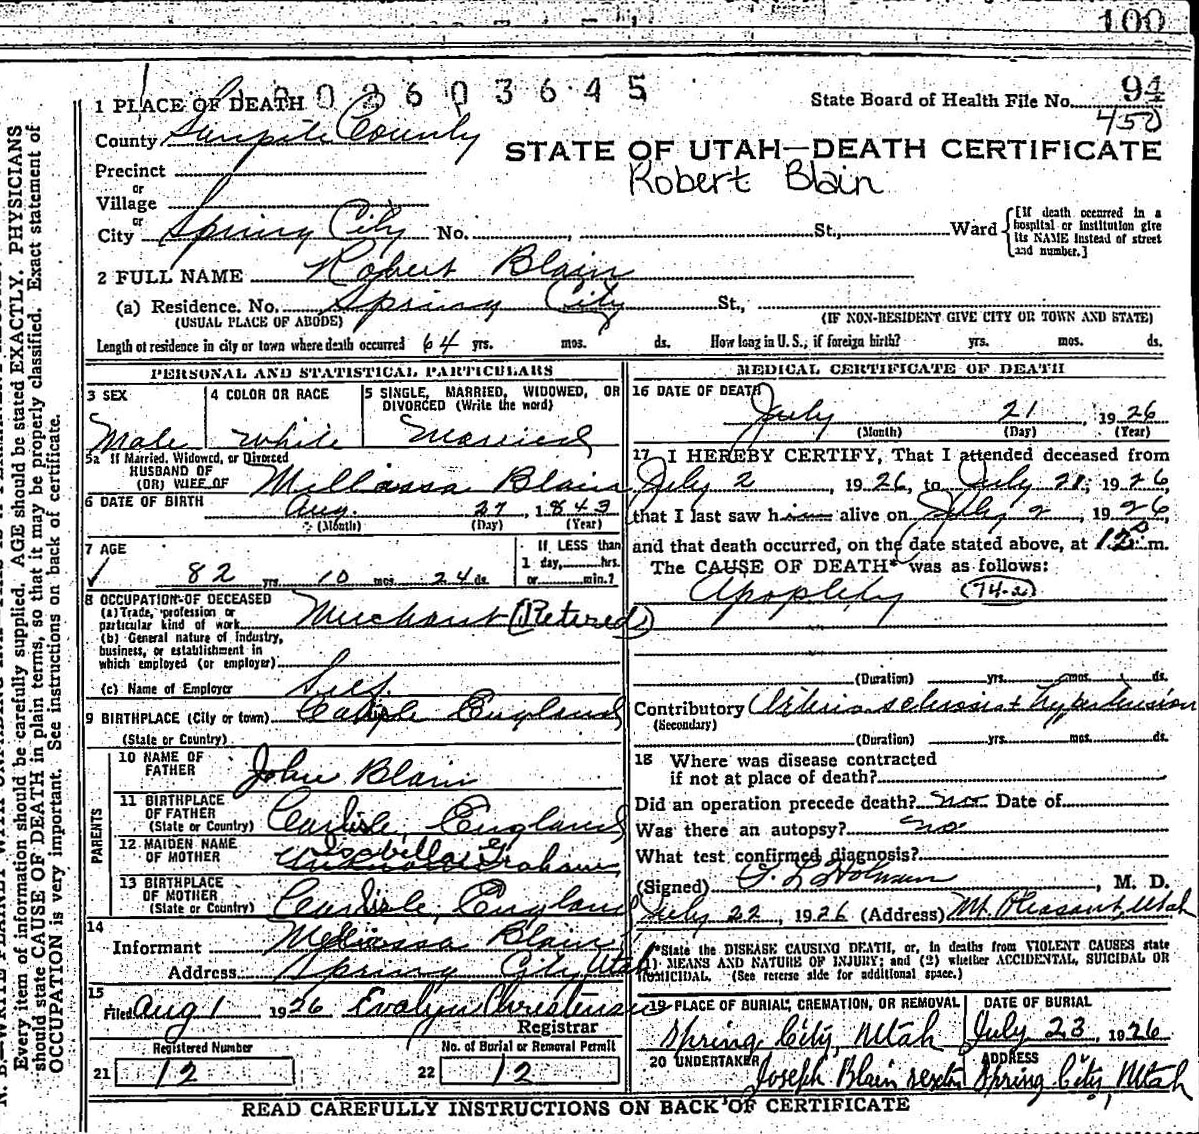 100
1 PLACE OF DEATH 0 0 2 6 0 3 6 4 5
State Board of Health File No. 94
450
County Sanpete County
STATE OF UTAH—DEATH CERTIFICATE
Robert Blain
Precinct
or
Village
or
City Spring City No. , St., Ward
[If death occurred in a hospital or institution give its NAME instead of street and number.]
2 FULL NAME Robert Blain
(a) Residence. No. Spring City St.,
(USUAL PLACE OF ABODE) (IF NON-RESIDENT GIVE CITY OR TOWN AND STATE)
Length of residence in city or town where death occurred 64 yrs. mos. ds. How long in U. S., if foreign birth? yrs. mos. ds.
PERSONAL AND STATISTICAL PARTICULARS
3 SEX
Male
4 COLOR OR RACE
White
5 SINGLE, MARRIED, WIDOWED, OR DIVORCED (Write the word)
Married
5a If Married, Widowed, or Divorced
HUSBAND OF
(OR) WIFE OF Millassa Blain
6 DATE OF BIRTH Aug. 27, 1843
(Month) (Day) (Year)
7 AGE
82 yrs. 10 mos. 24 ds.
If LESS than
1 day, hrs.
or min.?
8 OCCUPATION OF DECEASED
(a) Trade, profession or
particular kind of work Merchant (Retered)
(b) General nature of industry,
business, or establishment in
which employed (or employer)
(c) Name of Employer Self
9 BIRTHPLACE (City or town) Carlisle England
(State or Country)
PARENTS
10 NAME OF
FATHER John Blain
11 BIRTHPLACE
OF FATHER
(State or Country) Carlisle, England
12 MAIDEN NAME
OF MOTHER Isabella Graham
13 BIRTHPLACE
OF MOTHER
(State or Country) Carlisle, England
14
Informant Melissa Blain
Address Spring City Utah
15
Filed Aug 1 1926 Evalyn Christensen
Registrar
Registered Number
21 12
No. of Burial or Removal Permit
22 12
MEDICAL CERTIFICATE OF DEATH
16 DATE OF DEATH
July 21, 1926
(Month) (Day) (Year)
17 I HEREBY CERTIFY, That I attended deceased from
July 2, 1926, to July 21, 1926,
that I last saw him alive on July 2, 1926,
and that death occurred, on the date stated above, at 12 P m.
The CAUSE OF DEATH* was as follows:
Apoplexy (74-2)
(Duration) yrs. mos. ds.
Contributory Arteriosclerosis + hypertension
(Secondary)
(Duration) yrs. mos. ds.
18 Where was disease contracted
if not at place of death?
Did an operation precede death? no Date of
Was there an autopsy? no.
What test confirmed diagnosis?
(Signed) Holman, M. D.
July 22, 1926 (Address) Mt. Pleasant, Utah
*State the DISEASE CAUSING DEATH, or, in deaths from VIOLENT CAUSES state
(1) MEANS AND NATURE OF INJURY; and (2) whether ACCIDENTAL, SUICIDAL OR
HOMICIDAL. (See reverse side for additional space.)
19 PLACE OF BURIAL, CREMATION, OR REMOVAL
Spring City, Utah
DATE OF BURIAL
July 23, 1926
20 UNDERTAKER
Joseph Blain sexton
ADDRESS
Spring City, Utah
READ CAREFULLY INSTRUCTIONS ON BACK OF CERTIFICATE
Every item of information should be carefully supplied. AGE should be stated EXACTLY. PHYSICIANS
should state CAUSE OF DEATH in plain terms, so that it may be properly classified. Exact statement of
OCCUPATION is very important. See instructions on back of certificate.